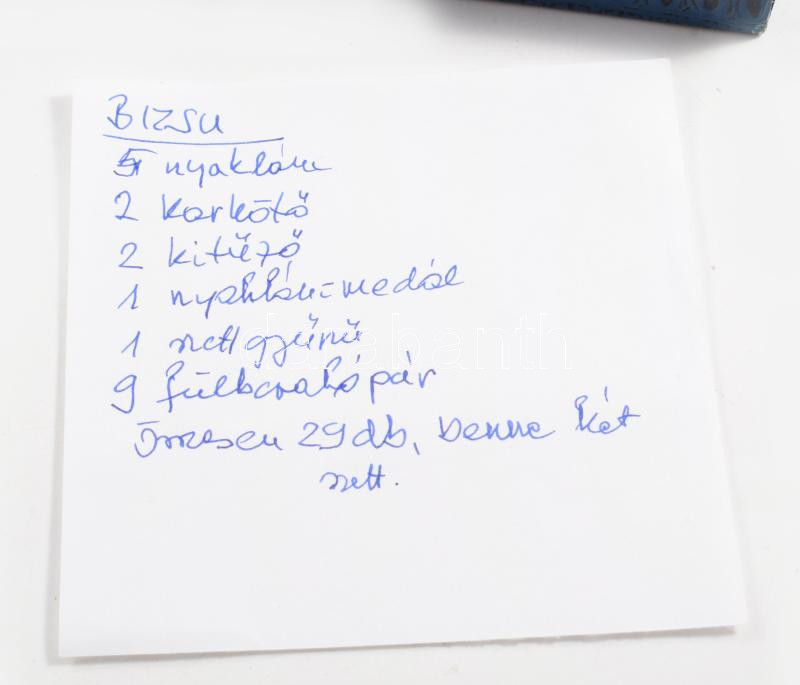 BIZSU
5 nyaklánc
2 karkötő
2 kitűző
1 nyaklánc=medál
1 szett gyűrű
9 fülbevaló pár
Összesen 29 db, benne két
szett.
darabanth